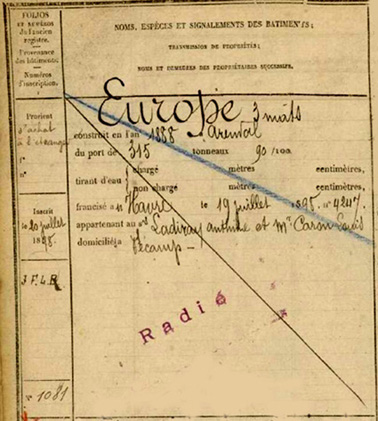 FOLIOS
ET NUMÉROS
de l'ancien
registre.
Provenance
des bâtiments.
Numéros
d'inscription.
NOMS, ESPÈCES ET SIGNALEMENTS DES BATIMENTS;
TRANSMISSION DE PROPRIÉTÉS;
NOMS ET DEMEURES DES PROPRIÉTAIRES SUCCESSIFS.
Europe 3 mâts
Provient
d'achat
à l'étranger
f°
n°
construit en l'an 1888 à Arendal
du port de 315 tonneaux 90/100.
tirant d'eau
chargé mètres centimètres,
non chargé mètres centimètres,
francisé au Havre le 19 juillet 1898. n° 4247.
appartenant au Ladiray et Mr Caron Louis
domicilié à Fécamp –
Inscrit
le 20 juillet
1898.
3 F. 4 B
Radié
n° 1081